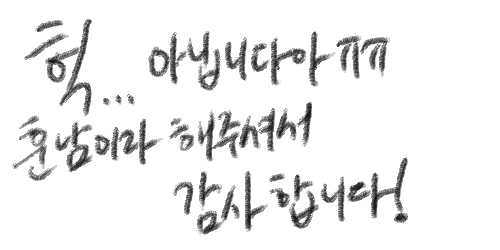 헉... 아닙니다아ㅠㅠ
훈남이라 해주셔서
감사합니다!